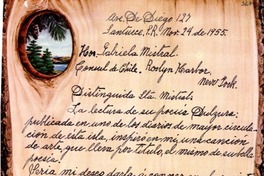 Ave. De Diego 127
Santurce, P.R. Nov. 24 de 1955.
Hon. Gabriela Mistral.
Consul de Chile, Roslyn Harbor,
New York.
Distinguida Sta. Mistral:
La lectura de su poesía Dulzura,
publicada en uno de los diarios de mayor circula-
ción de esta isla, inspiró en mí, una canción
de arte, que lleva por título, el mismo de su bella
poesía.
Sería mi deseo darla á conocer